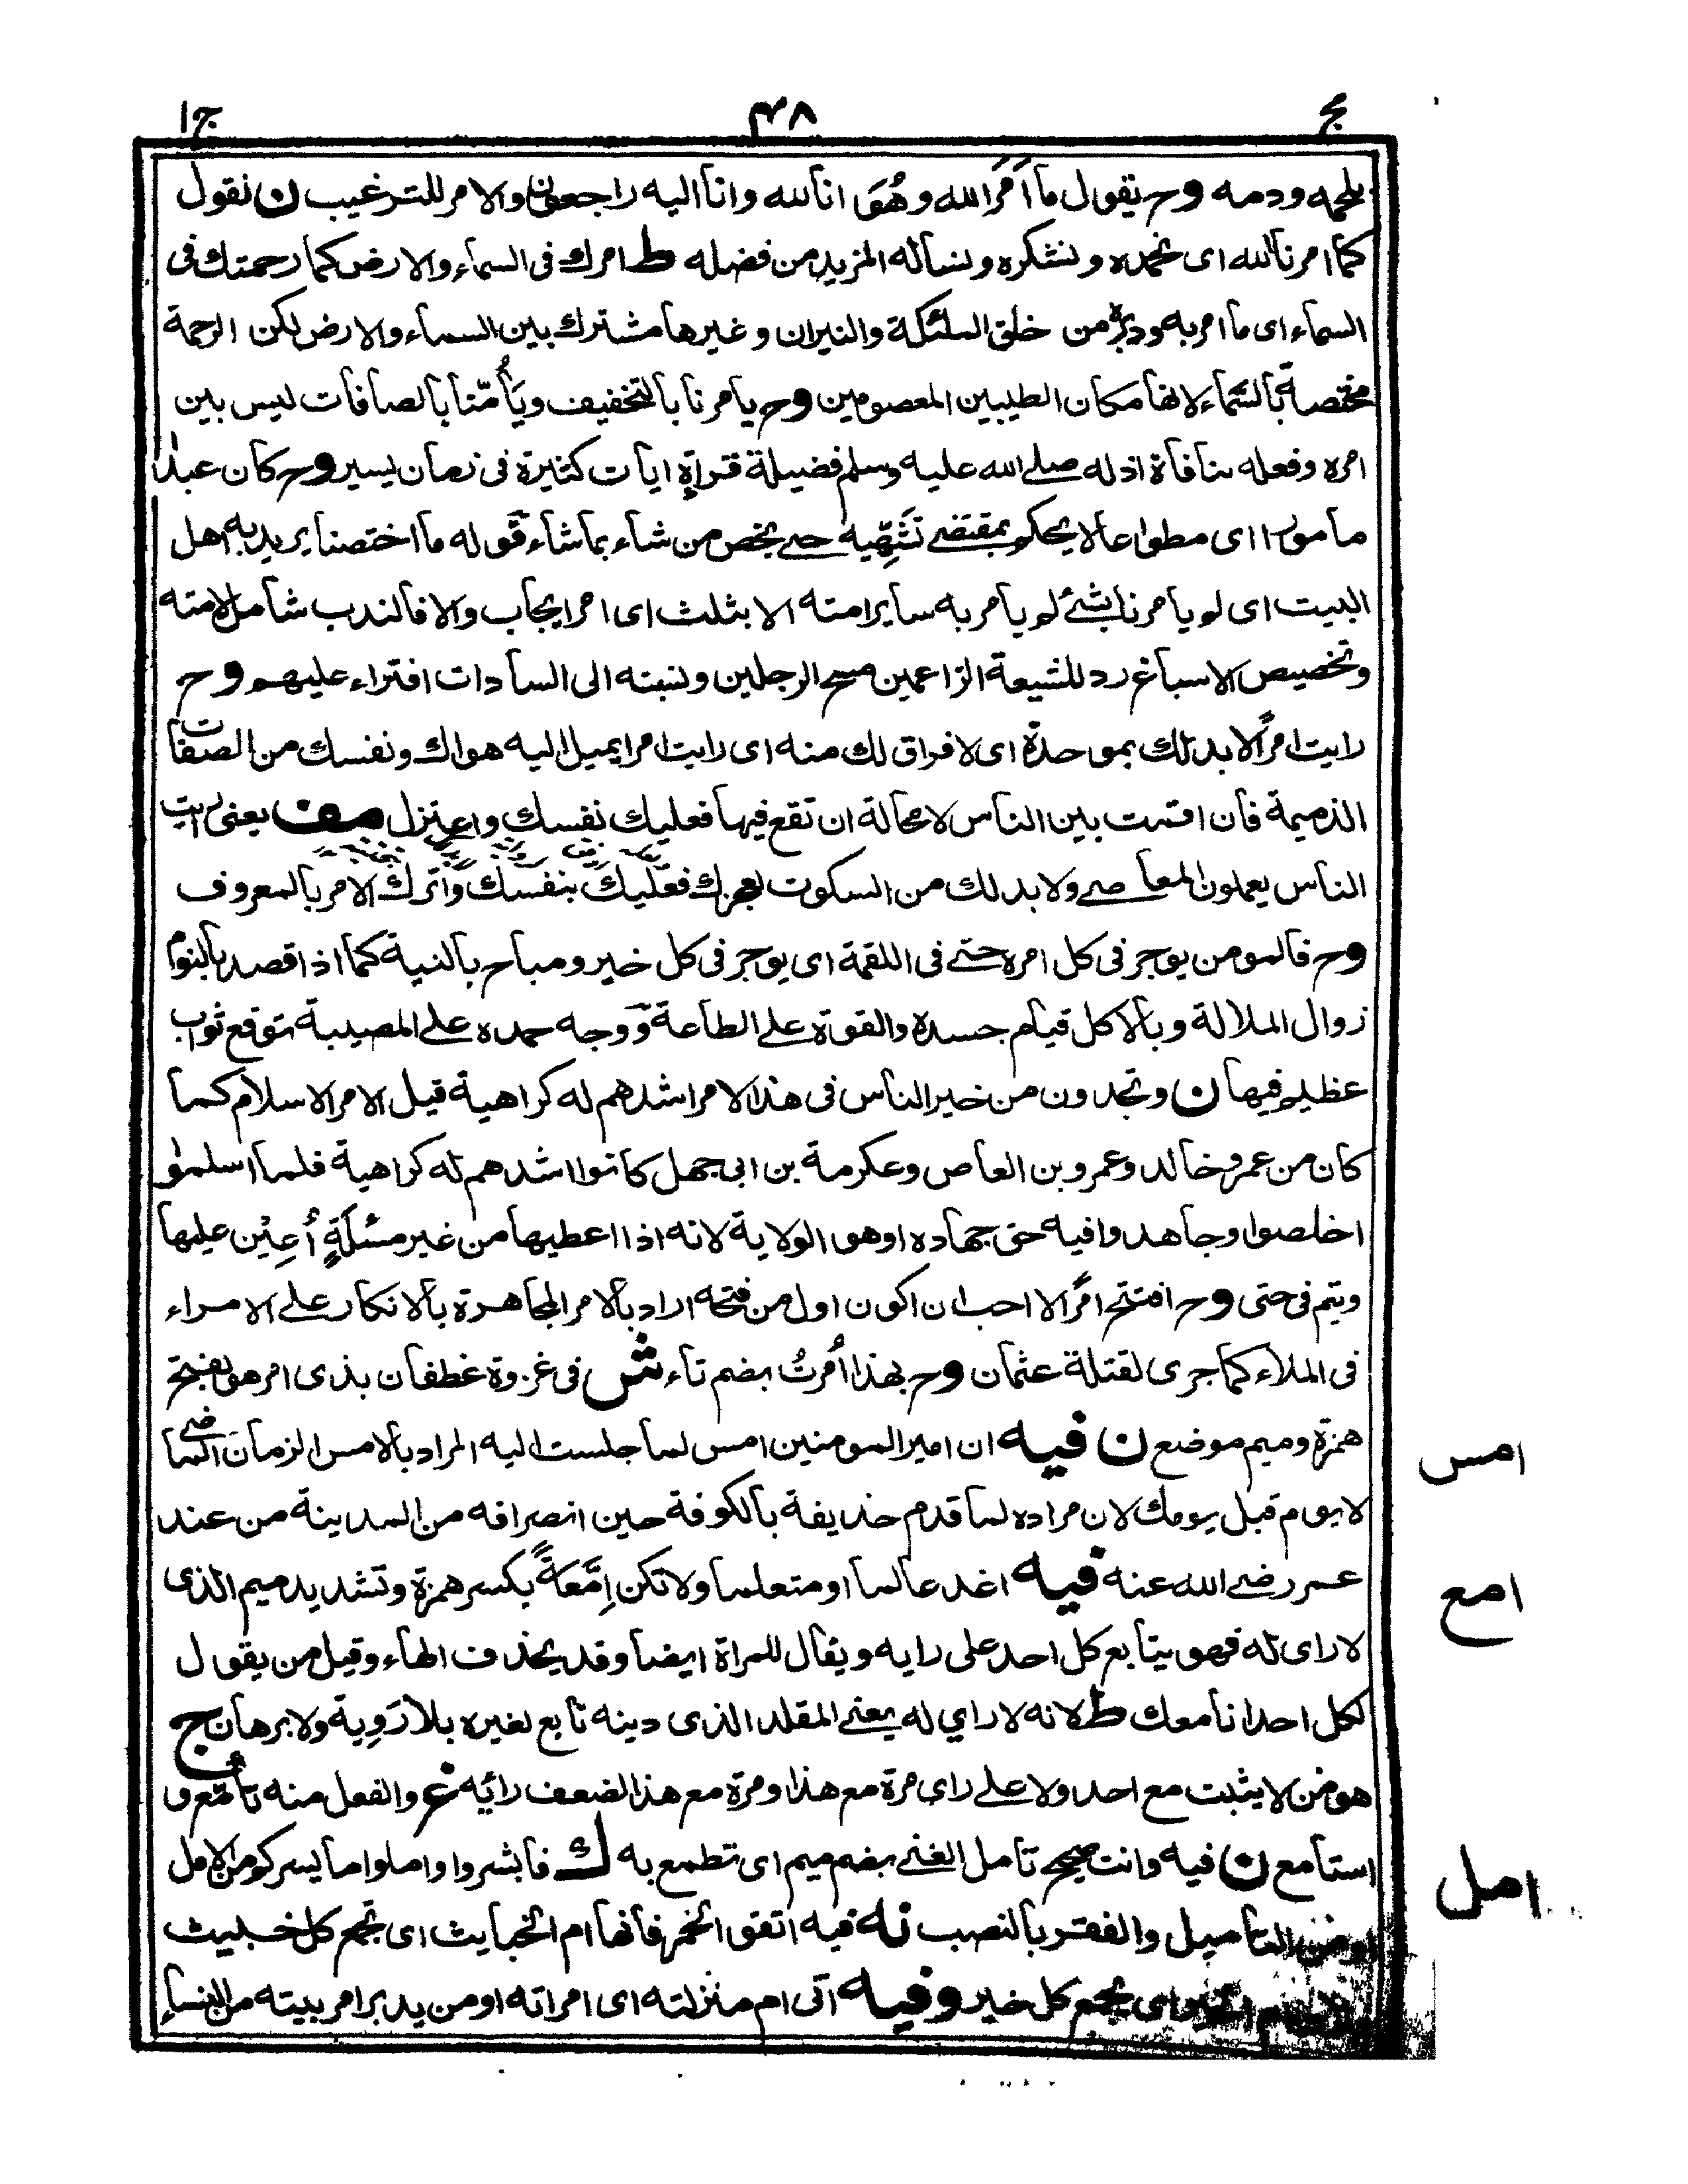 مج ۴۸ ج ا
بلحمه ودمه وح يقول ما أمَرَ الله وهُوَ انا لله وانا اليه راجعون والامر للترغيب ن نقول
كما امرنا لله اى نحمده ونشكره ونساله المزيد من فضله ط امرك فى السماء والارض كما رحمتك فى
السماء اى ما امر به ودبره من خلق الملئكة والنيران وغيرها مشترك بين السماء والارض لكن الرحمة
مختصة بالسماء لانها مكان الطيبين المعصومين وح يامرنا بالتخفيف ويَأُمّنا بالصافات ليس بين
امره وفعله منافاة اذ له صلى الله عليه وسلم فضيلة قراءة ايات كثيرة فى زمان يسير وح كان عبدا
مامورا اى مطواعا لا يحكم بمقتضى تشهّيه حتى يخص من شاء بما شاء قوله ما اختصنا يريد به اهل
البيت اى لم يامرنا بشئ لم يامر به ساير امته الا بثلث اى امر ايجاب والا فالندب شامل لامته
وتخصيص الاسباغ رد للشيعة الزاعمين مسح الرجلين ونسبته الى السادات افتراء عليهم وح
رايت امرًا لا بد لك بموحدة اى لا فراق لك منه اى رايت امرا يميل اليه هواك ونفسك من الصفات
الذميمة فان اقمت بين الناس لا محالة ان تقع فيها فعليك نفسك واعتزل مف يعنى رايت
الناس يعملون المعاصى ولا بد لك من السكوت لعجزك فعليك بنفسك واترك الامر بالمعروف
وح فالمومن يوجر فى كل امره حتى فى اللقمة اى يوجر فى كل خير ومباح بالنية كما اذا قصد بالنوم
زوال الملالة وبالاكل قيام جسده والقوة على الطاعة ووجه حمده على المصيبة توقع ثواب
عظيم فيها ن وتجدون من خير الناس فى هذا الامر اشدهم له كراهية قيل الامر الاسلام كما
كان من عمر وخالد وعمرو بن العاص وعكرمة بن ابى جهل كانوا اشدهم له كراهية فلما اسلموا
اخلصوا وجاهدوا فيه حق جهاده او هو الولاية لانه اذا اعطيها من غير مسئلةٍ أُعِيْن عليها
ويتم فى حتى وح افتتح امرًا لا احب ان اكون اول من فتحه اراد بالامر المجاهرة بالانكار على الامراء
فى الملاء كما جرى لقتلة عثمان وح بهذا أُمرتُ بضم تاء ش فى غزوة غطفان بذى امر هو بفتح
همزة وميم موضع ن فيه ان امير المومنين امس لما جلست اليه المراد بالامس الزمان الماضى
لا يوم قبل يومك لان مراده لما قدم حذيفة بالكوفة حين انصرافه من المدينة من عند
عمر رضى الله عنه فيه اغد عالما او متعلما ولا تكن اِمَّعَةً بكسر همزة وتشديد ميم الذى
لا راى له فهو يتابع كل احد على رايه ويقال للمراة ايضا وقد يحذف الهاء وقيل من يقول
لكل احد انا معك ط لانه لا راي له يعنى المقلد الذى دينه تابع لغيره بلا رَوِية ولا برهان ج
هو من لا يثبت مع احد ولا على راى مرة مع هذا ومرة مع هذا لضعف رائه غ والفعل منه تأمّع و
استامع ن فيه وانت صحيح تامل الغنى بضم ميم اى تطمع به ك فابشروا واملوا ما يسركم من الامل
او من التاميل والفقر بالنصب نه فيه اتقوا الخمر فانها ام الخبايث اى تجمع كل خبيث
ام الخير اى يجمع كل خير وفيه اتى ام منزلته اى امراته او من يدبر امر بيته من النساء
امس
امع
امل